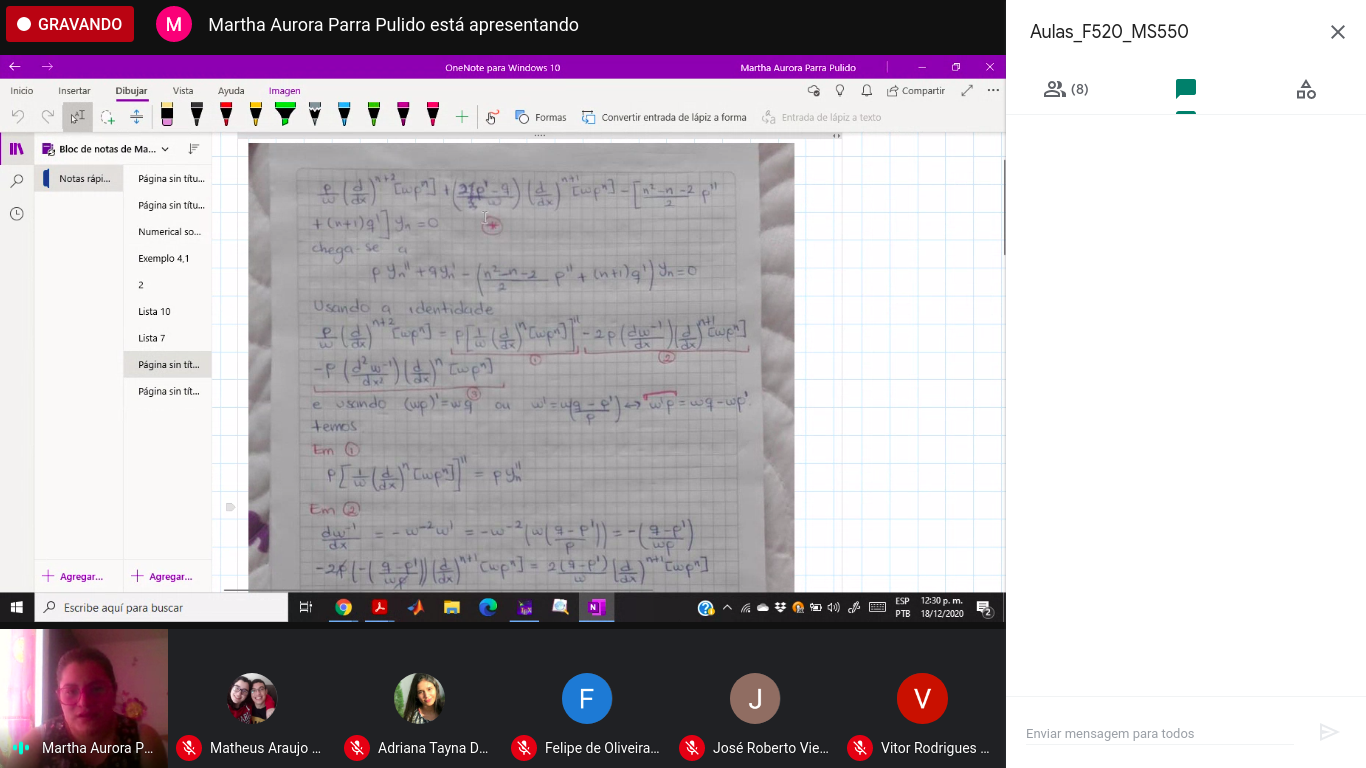 GRAVANDO
M
Martha Aurora Parra Pulido está apresentando
Aulas_F520_MS550
(8)
OneNote para Windows 10
Martha Aurora Parra Pulido
Inicio Insertar Dibujar Vista Ayuda Imagen
Compartir
Formas
Convertir entrada de lápiz a forma
Entrada de lápiz a texto
Bloc de notas de Ma...
Notas rápi...
Página sin títu...
Página sin títu...
Numerical so...
Exemplo 4,1
2
Lista 10
Lista 7
Página sin tít...
Página sin tít...
Agregar...
Agregar...
+ (n+1)q'] yₙ = 0
chega-se a
p yₙ'' + q yₙ' - (n²-n-2/2 p'' + (n+1)q') yₙ = 0
Usando a identidade
p/w (d/dx)ⁿ⁺² [wpⁿ] = p[1/w (d/dx)ⁿ [wpⁿ]]'' - 2p (dw⁻¹/dx)(d/dx)ⁿ⁺¹ [wpⁿ]
① ②
-p (d²w⁻¹/dx²)(d/dx)ⁿ [wpⁿ]
③
e usando (wp)' = wq ou w' = w(q-p'/p) ↔ w'p = wq - wp'
temos
Em ①
p[1/w (d/dx)ⁿ [wpⁿ]]'' = p yₙ''
Em ②
dw⁻¹/dx = -w⁻²w' = -w⁻²(w(q-p'/p)) = -(q-p'/wp)
-2p(-(q-p'/wp))(d/dx)ⁿ⁺¹ [wpⁿ] = 2(q-p')/w (d/dx)ⁿ⁺¹ [wpⁿ]
Escribe aquí para buscar
ESP
PTB
12:30 p. m.
18/12/2020
2
F
J
V
Martha Aurora P...
Matheus Araujo ...
Adriana Tayna D...
Felipe de Oliveira...
José Roberto Vie...
Vitor Rodrigues ...
Enviar mensagem para todos